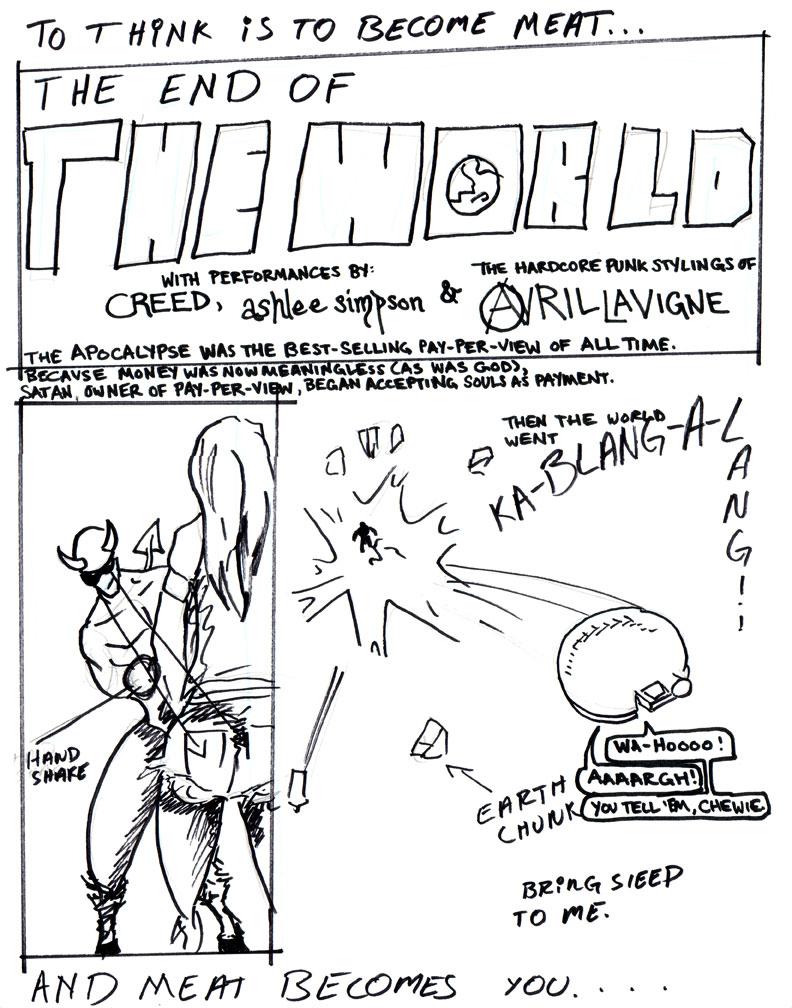 TO THINK IS TO BECOME MEAT...
THE END OF
THE WORLD
WITH PERFORMANCES BY:
CREED, ashlee simpson &
THE HARDCORE PUNK STYLINGS OF
AVRIL LAVIGNE
THE APOCALYPSE WAS THE BEST-SELLING PAY-PER-VIEW OF ALL TIME.
BECAUSE MONEY WAS NOW MEANINGLESS (AS WAS GOD),
SATAN, OWNER OF PAY-PER-VIEW, BEGAN ACCEPTING SOULS AS PAYMENT.
HAND
SHAKE
THEN THE WORLD
WENT
KA-BLANG-A-LANG!!
WA-HOOOO!
AAAARGH!
YOU TELL 'EM, CHEWIE
EARTH
CHUNK
BRING SLEEP
TO ME.
AND MEAT BECOMES YOU.....